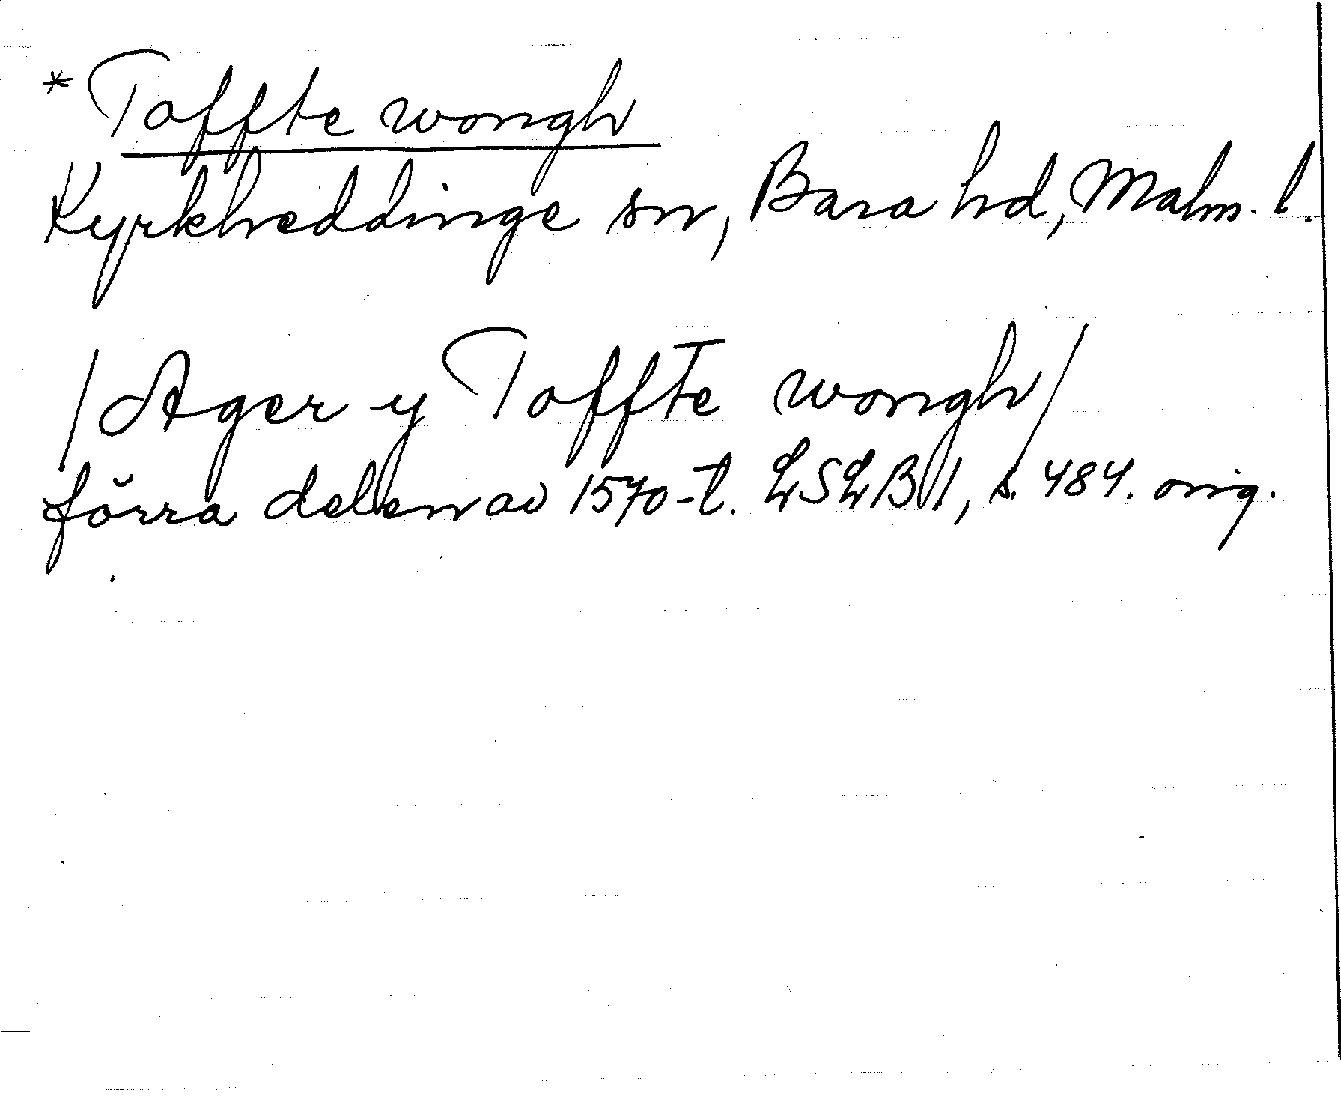 * Toffte wongh
Kyrkheddinge sn, Bara hd, Malm. l.
/Ager y Toffte wongh/
förra delen av 1570-t. LSLB 1, s. 484. orig.